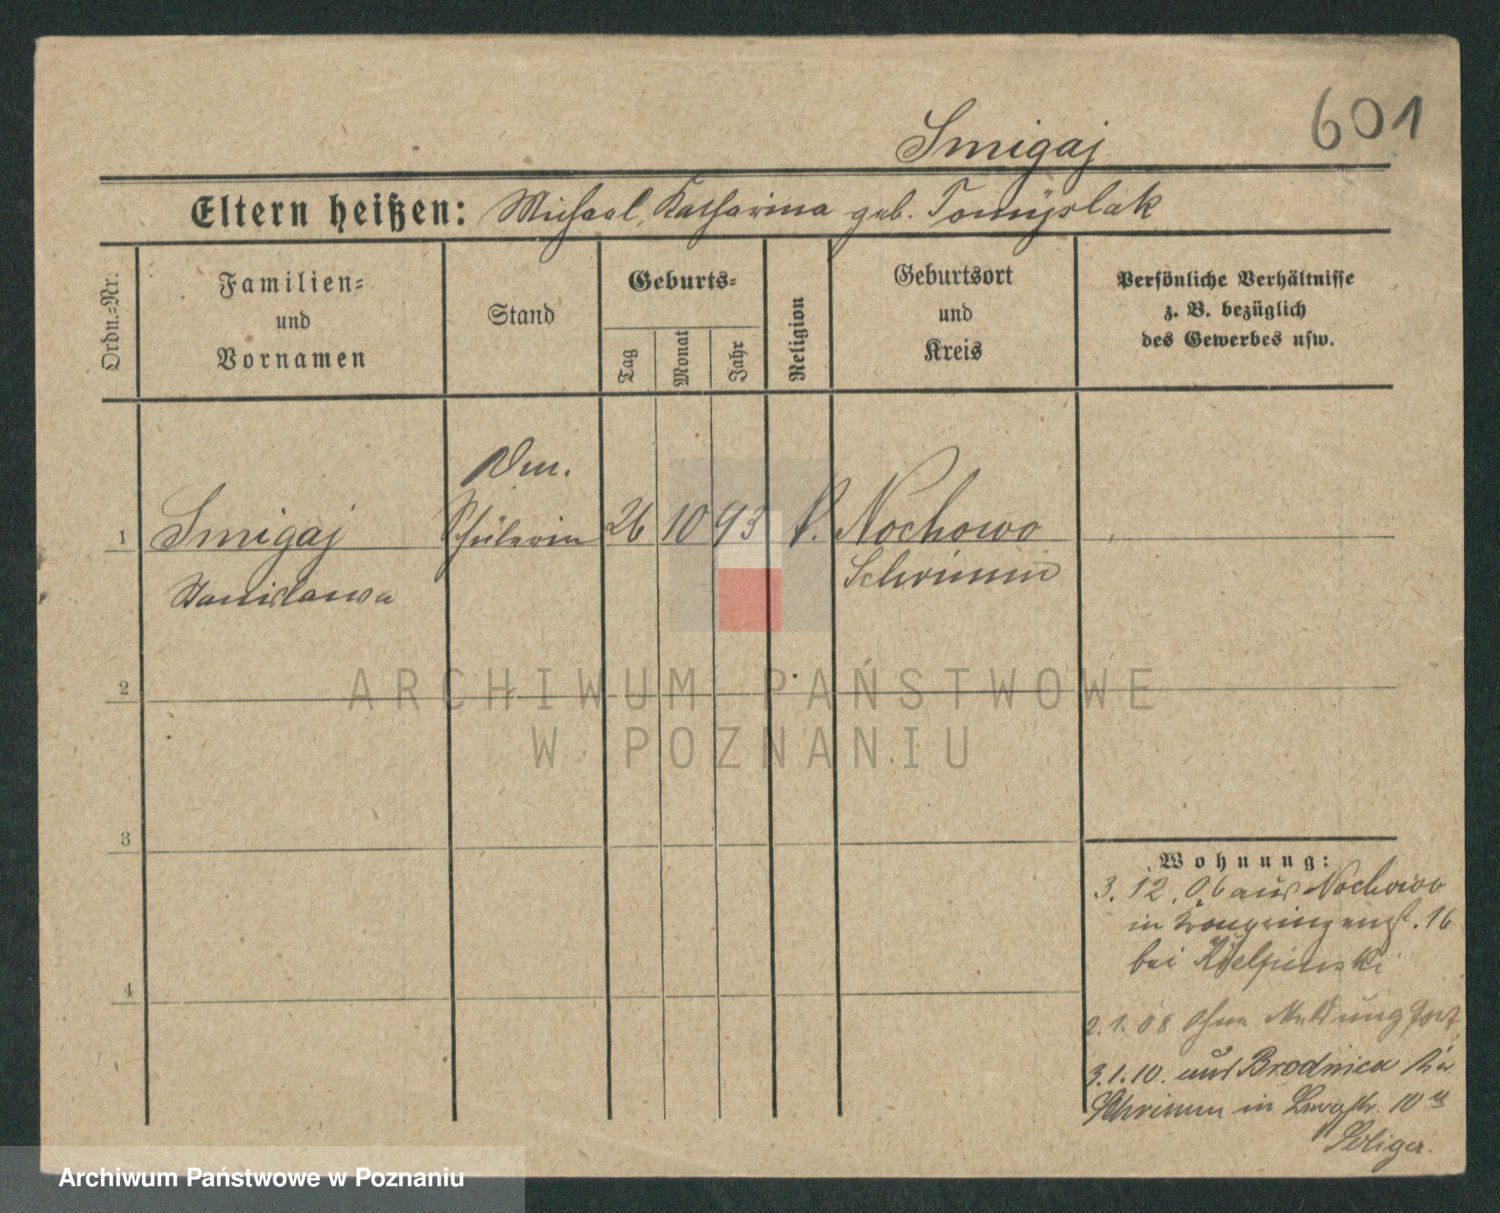 601
Smigaj
Eltern heißen: Michael, Katharina geb. Tomyslak
Ordn.=Nr.
Familien=
und
Vornamen
Stand
Geburts=
Tag
Monat
Jahr
Religion
Geburtsort
und
Kreis
Persönliche Verhältnisse
z. B. bezüglich
des Gewerbes usw.
1
Smigaj
Stanislawa
Schülerin
26
10
93
k.
Nochowo
Schrimm
2
3
4
Wohnung:
3. 12. 06 aus Nochowo
in 16
bei
2. 1. 08 ohne Meldung fort
3. 1. 10. aus Brodnica Kr.
Schrimm in 10
ARCHIWUM PAŃSTWOWE
W POZNANIU
Archiwum Państwowe w Poznaniu